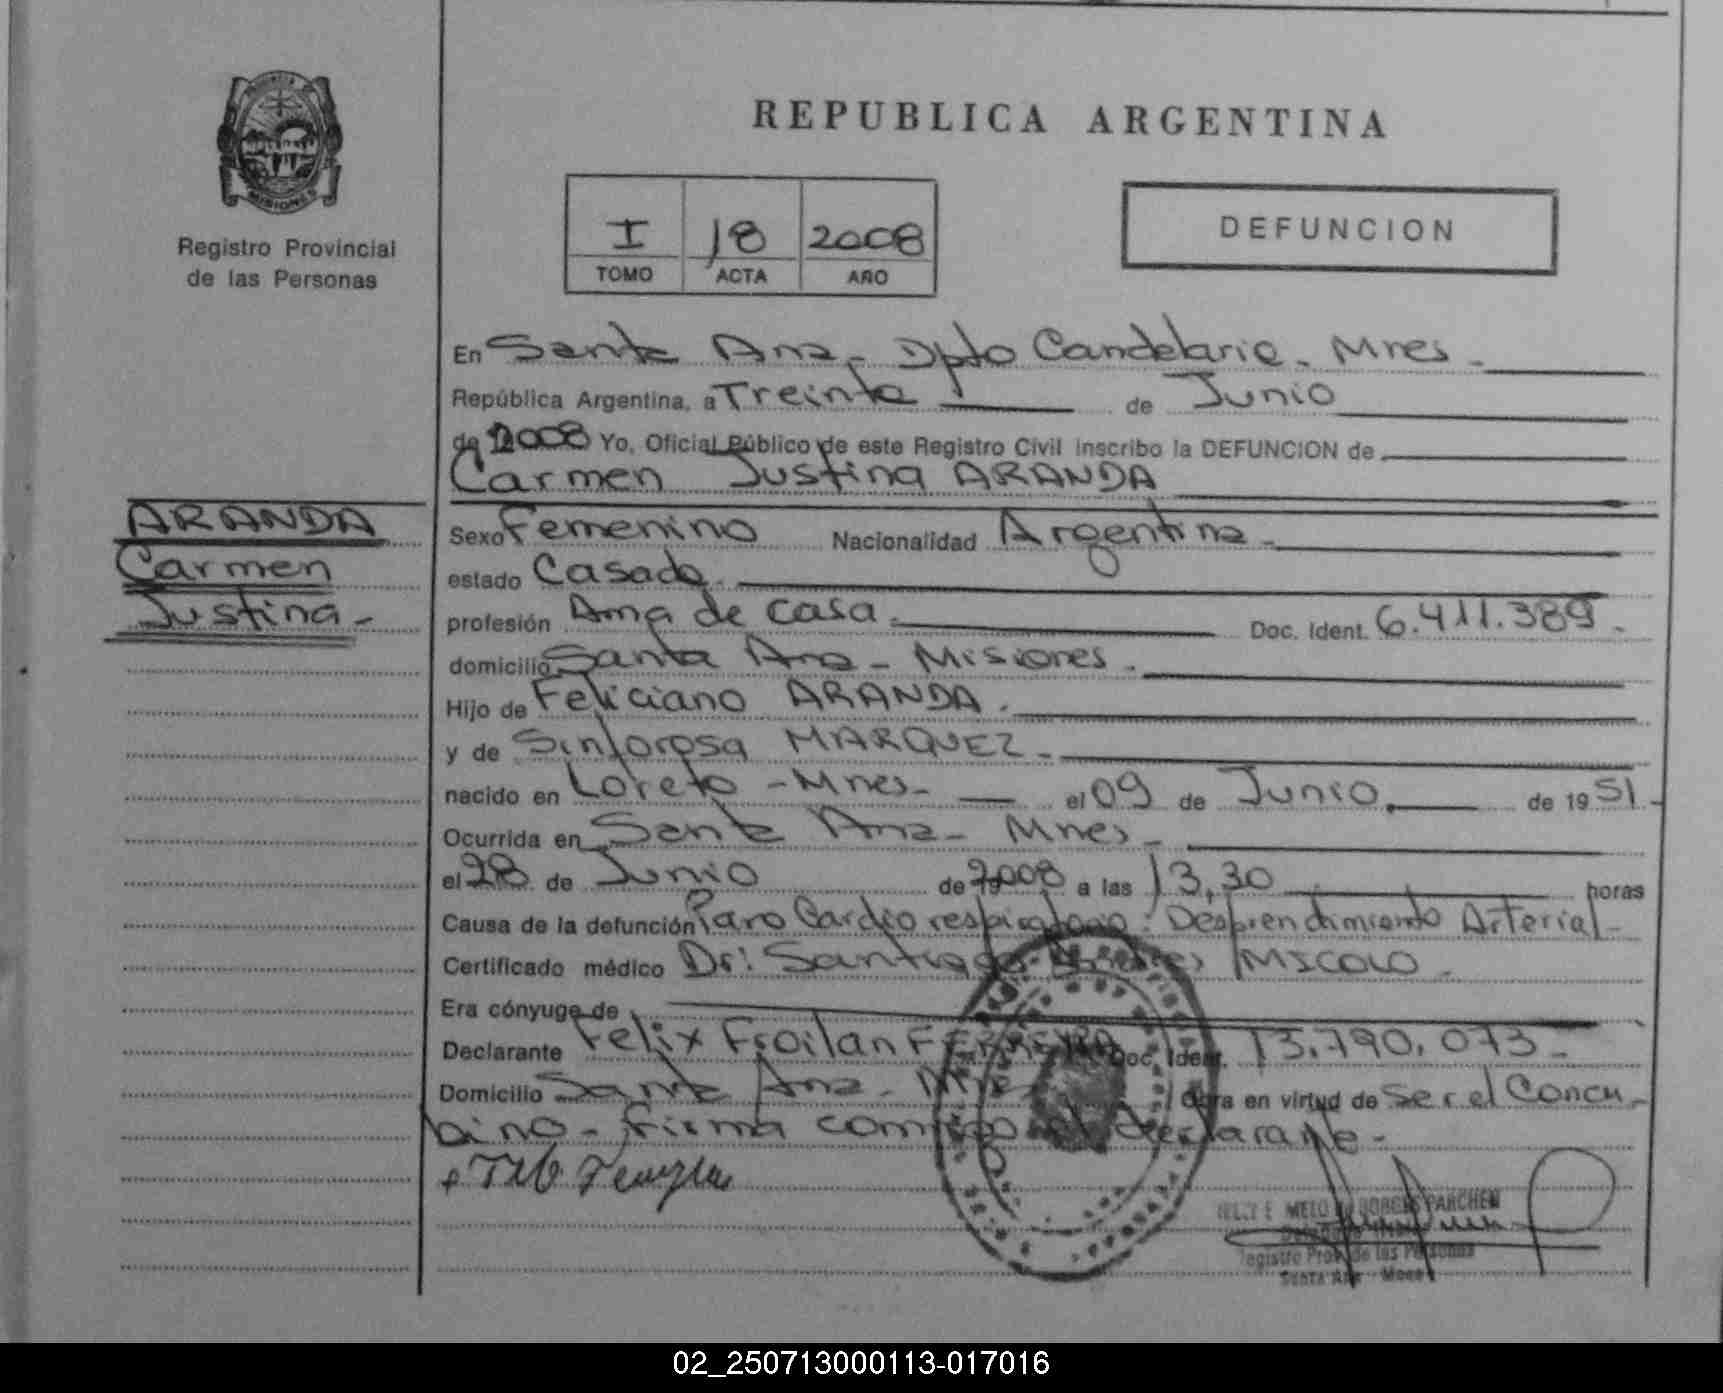 PROVINCIA DE
MISIONES
Registro Provincial
de las Personas
REPUBLICA ARGENTINA
I 18 2008
TOMO ACTA AÑO
DEFUNCION
En Santa Ana - Dpto Candelaria - Mnes -
República Argentina, a Treinta de Junio
de 2008 Yo, Oficial Público de este Registro Civil inscribo la DEFUNCION de
Carmen Justina ARANDA
ARANDA
Carmen
Justina -
Sexo Femenino Nacionalidad Argentina -
estado Casada.
profesión Ama de casa. Doc. Ident. 6.411.389 -
domicilio Santa Ana - Misiones.
Hijo de Feliciano ARANDA.
y de Sinforosa MARQUEZ -
nacido en Loreto - Mnes - el 09 de Junio. de 1951 -
Ocurrida en Santa Ana - Mnes -
el 28 de Junio de 2008 a las 13,30 horas
Causa de la defunción Paro Cardio respiratorio: Desprendimiento Arterial -
Certificado médico Dr: Santiago MICOLO.
Era cónyuge de
Declarante Felix Froilan FERREYRA Doc. Ident. 13.790.073 -
Domicilio Santa Ana - Mnes Obra en virtud de Ser el Concu
bino - firma conmigo el declarante -
MELO BORGES PARCHEN
Registro Prov. de las Personas
Santa Ana - Mnes
02_250713000113-017016